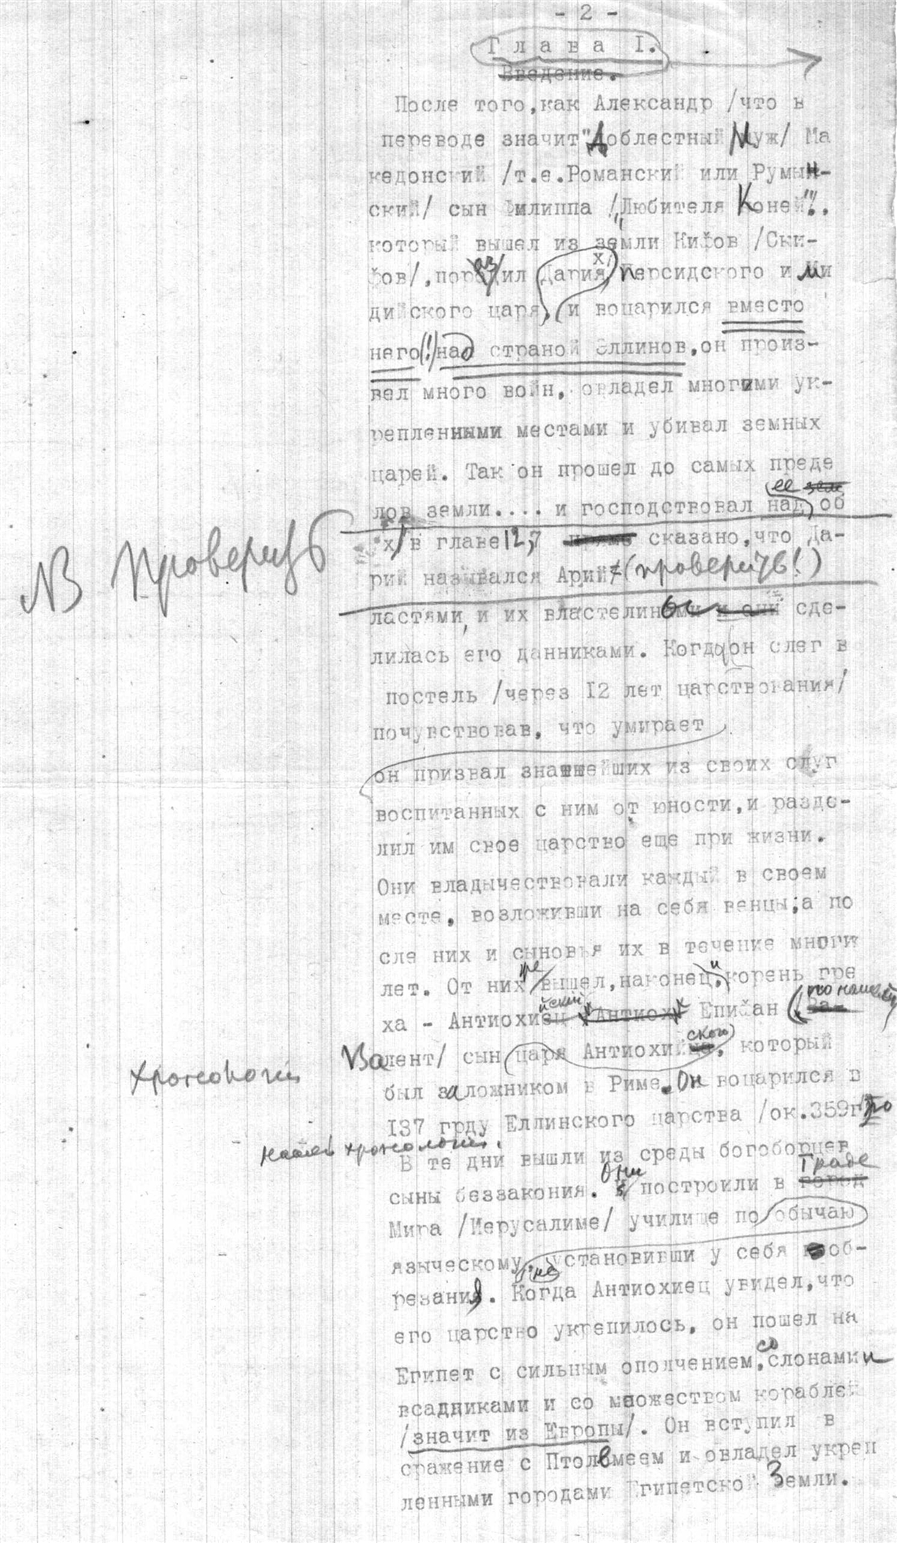 - 2 -
Глава I.
Введение.
После того, как Александр /что в
переводе значит "Доблестный Муж/ Ма
кедонский /т.е.Романский или Румын-
ский/ сын Филиппа /"Любителя Коней"/.
который вышел из земли Киѳов /Ски-
ѳов/, поразил Дария х/ Персидского и Ми
дийского царя, и воцарился вместо
него(!) над страной Эллинов, он произ-
вел много войн, овладел многими ук-
репленными местами и убивал земных
царей. Так он прошел до самых преде
лов ее земли.... и господствовал над об
NB Проверить
х/ в главе 12,7 сказано, что Да-
рий назывался Арий (проверить!)
ластями, и их властелинами и они сде-
лилась его данниками. Когда он слег в
постель /через 12 лет царствования/
почувствовав, что умирает
он призвал знатнейших из своих слуг
воспитанных с ним от юности, и разде-
лил им свое царство еще при жизни.
Они владычествовали каждый в своем
месте, возложивши на себя венцы, а по
сле них и сыновья их в течение многи
лет. От них вышел, наконец, и корень гре
ха - Антиохийский Антиох Епифан (по нашему
Валент/ сын царя Антиохийского, который
был заложником в Риме. Он воцарился в
137 году Еллинского царства /ок.359г по
нашей хронологии.
хронологии
В те дни вышли из среды богоборцев
сыны беззакония. Они построили в Граде
Мира /Иерусалиме/ училище по обычаю
языческому, установивши у себя об-
резания. Когда Антиохиец увидел, что
его царство укрепилось, он пошел на
Египет с сильным ополчением, со слонами и
всадниками и со множеством кораблей
/значит из Европы/. Он вступил в
сражение с Птолемеем и овладел укреп
ленными городами Египетской Земли.